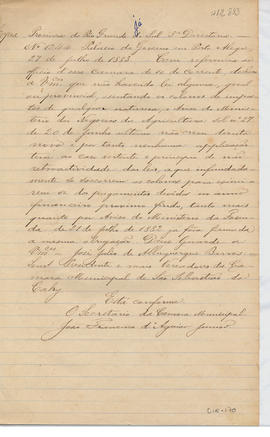 412 883
Copia Provincia do Rio Grande do Sul. 3ª Directoria. —
Nº 1044. Palacio do Governo em Porto Alegre,
27 de julho de 1883. Com referencia ao
officio d'essa Camara de 10 do corrente, declaro
a Vmces que não havendo lei alguma, geral
ou provincial, isentando os colonos de impostos
de qualquer natureza, o Aviso do Ministe-
rio dos Negocios da Agricultura sob nº 27
de 20 de Junho ultimo não tem direito
novo e por tanto nenhuma applicação
tem ao caso vertente o principio de não
retroactividade das leis, a que infundamente
se soccorrem os colonos para exonera-
rem se do pagamentos devidos no anno
financeiro proximo findo, tanto mais
quanto por Aviso do Ministerio da Fazen-
da, de 21 de julho de 1882 já fora firmada
a mesma obrigação. Deus Guarde a
Vmces — José Julio de Albuquerque Barros.
Senrs Presidente e mais Vereadores da Ca-
mara Municipal de São Sebastião do
Cahy
Está conforme
O Secretario da Camara Municipal
João Francisco d'Aguiar Junior